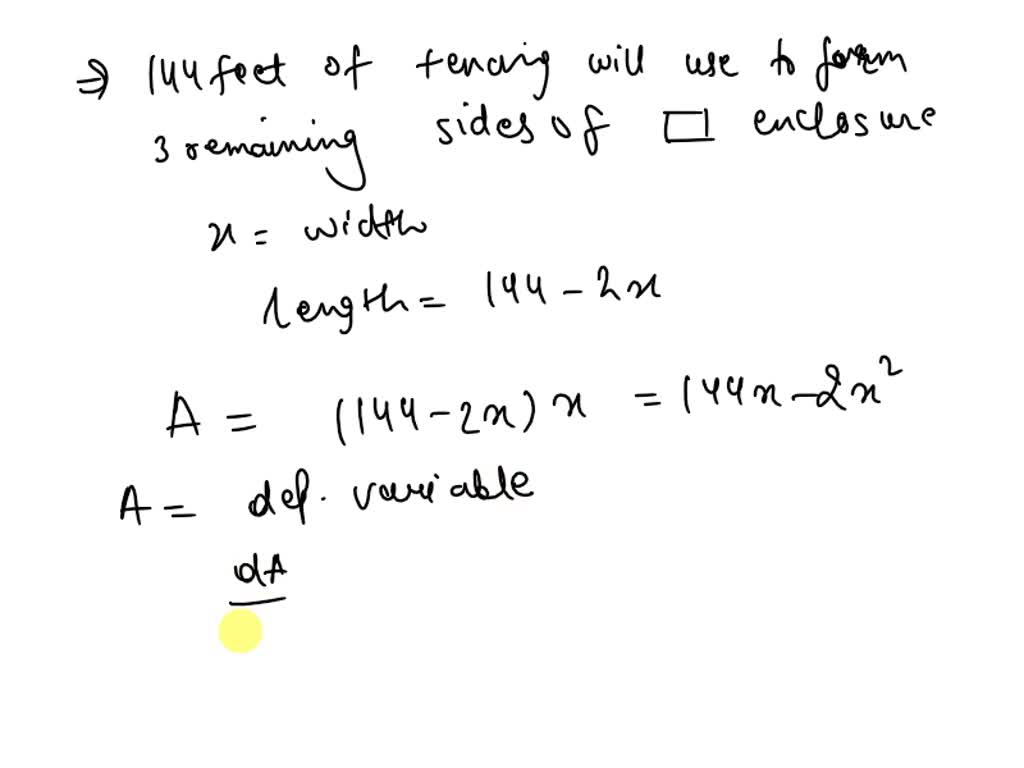 ⇒ 144 feet of fencing will use to form
3 remaining sides of □ enclosure
x = width
length = 144 - 2x
A = (144 - 2x) x = 144x - 2x²
A = def. variable
dA